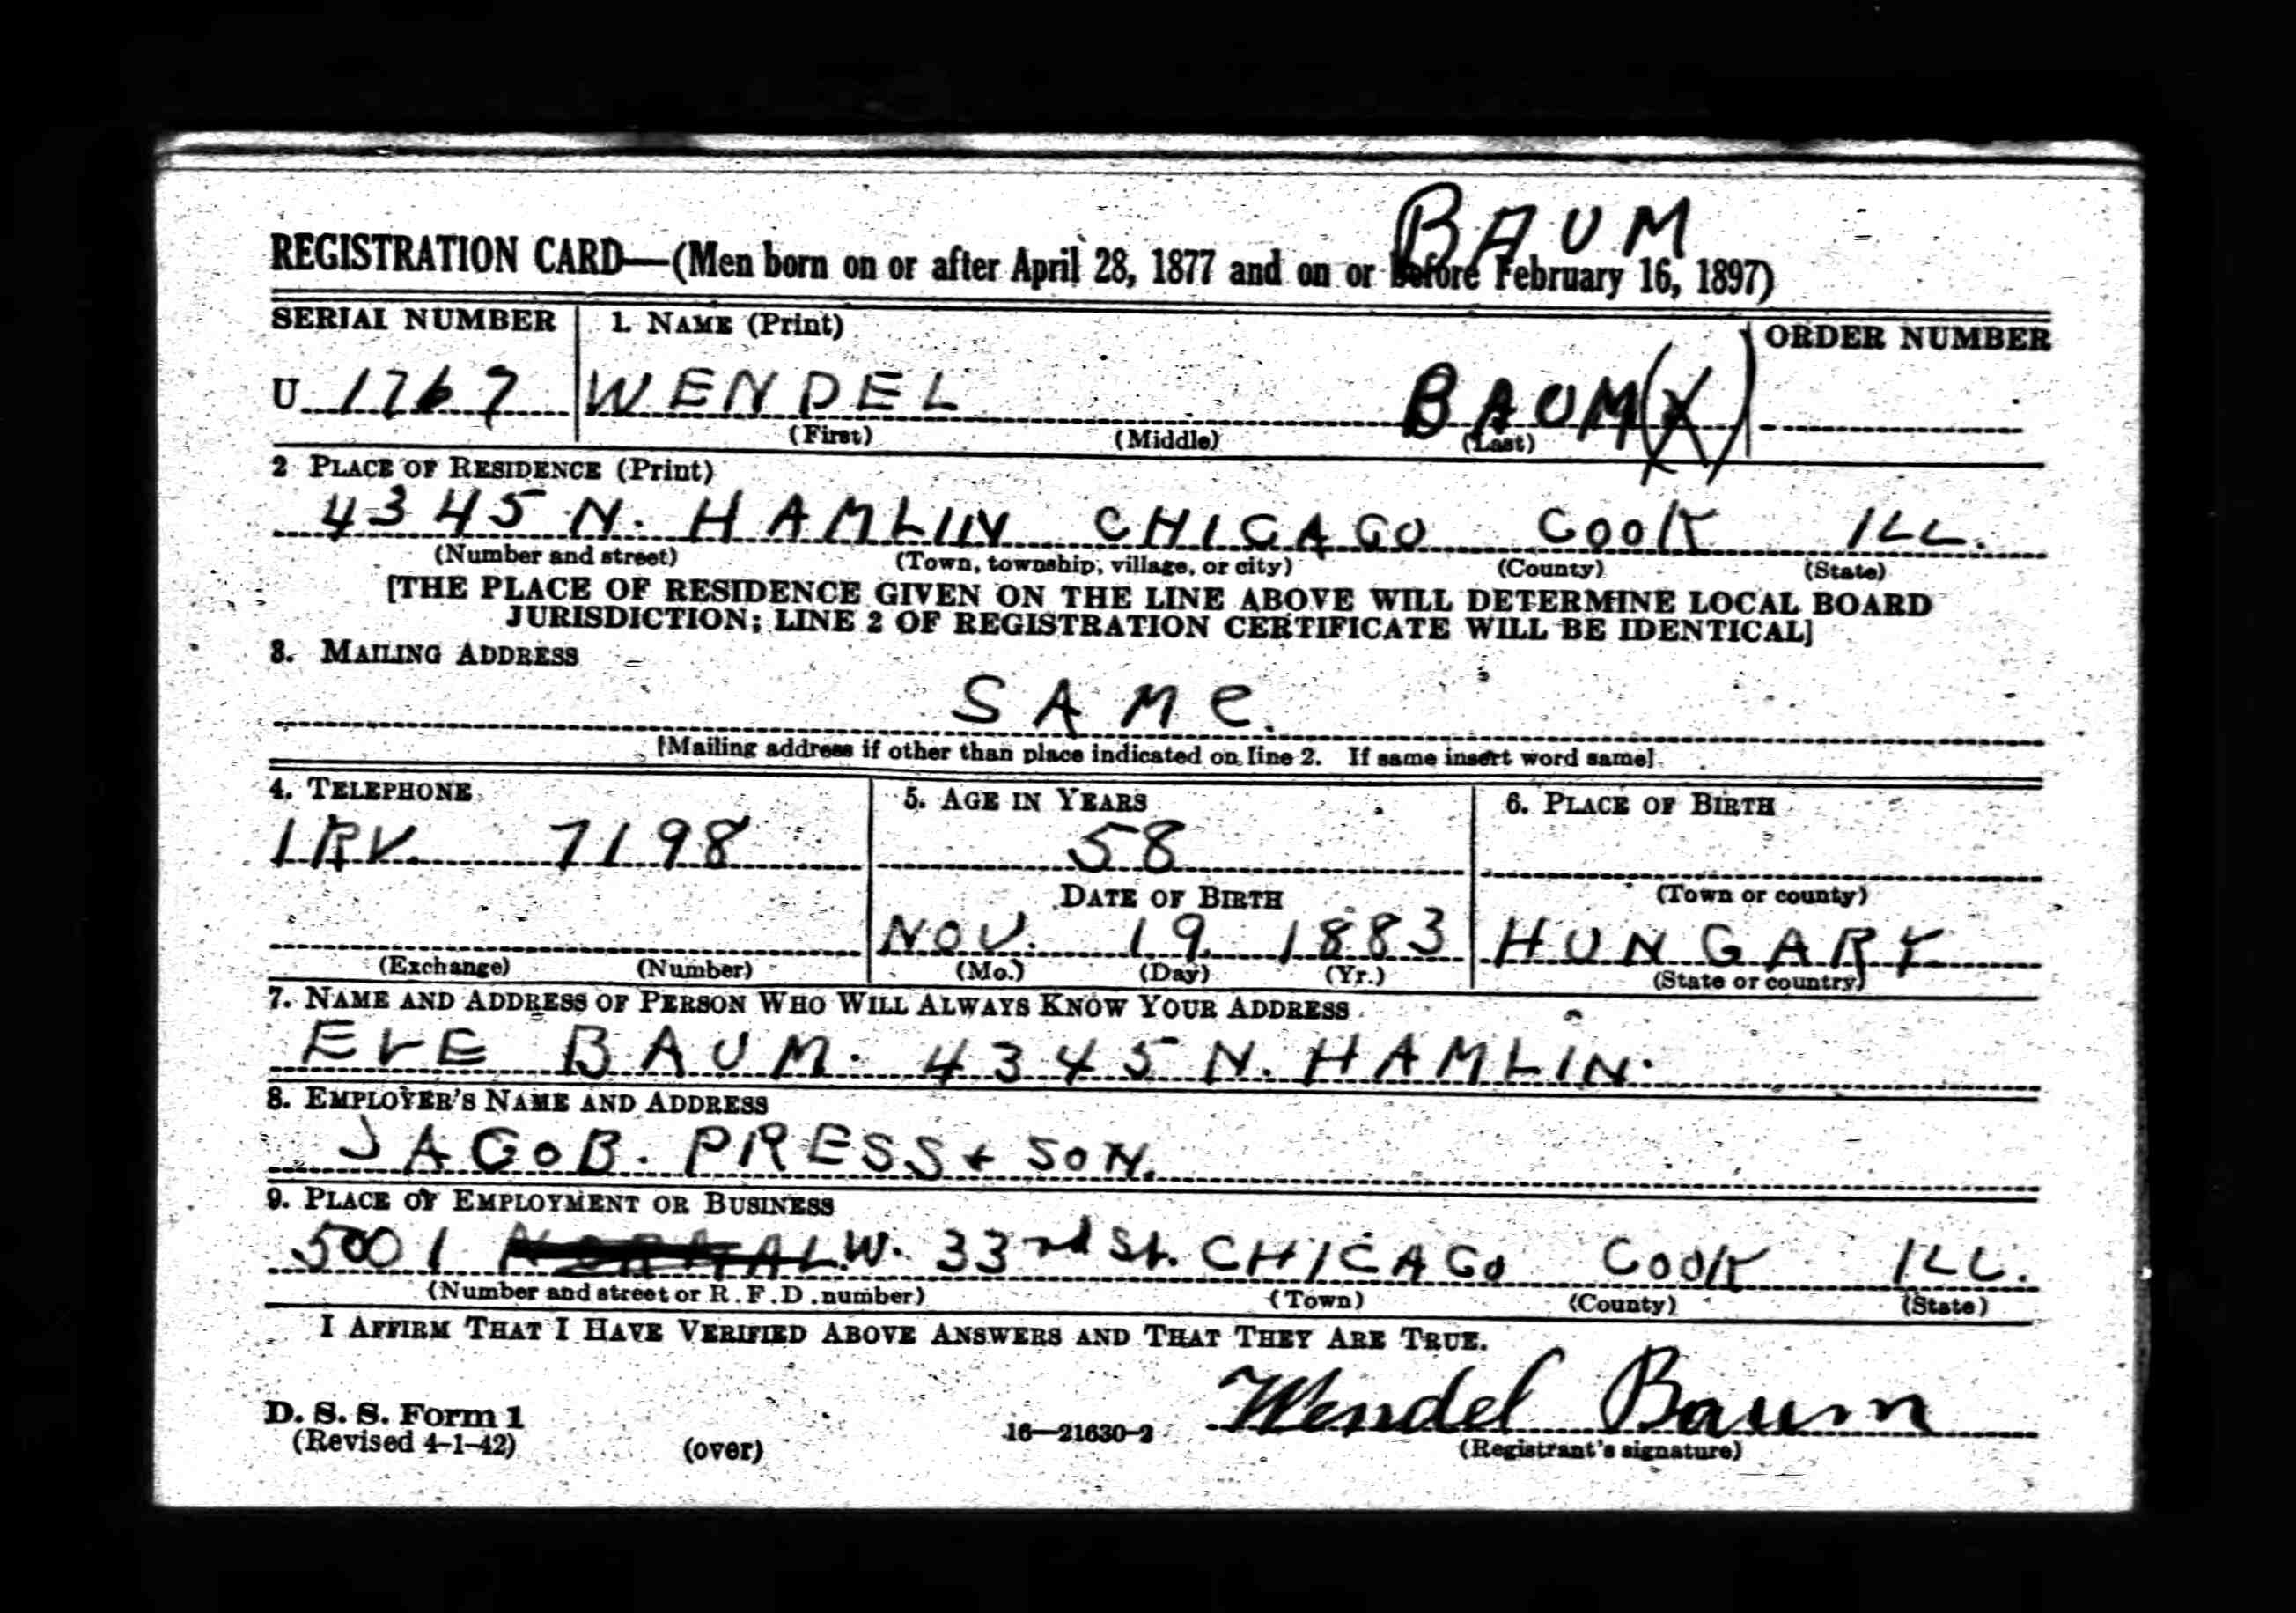 BAUM
REGISTRATION CARD—(Men born on or after April 28, 1877 and on or before February 16, 1897)
SERIAL NUMBER 1. NAME (Print) ORDER NUMBER
U 1767 WENDEL BAUM (X)
(First) (Middle) (Last)
2 PLACE OF RESIDENCE (Print)
4345 N. HAMLIN CHICAGO COOK ILL.
(Number and street) (Town, township, village, or city) (County) (State)
[THE PLACE OF RESIDENCE GIVEN ON THE LINE ABOVE WILL DETERMINE LOCAL BOARD
JURISDICTION; LINE 2 OF REGISTRATION CERTIFICATE WILL BE IDENTICAL]
3. MAILING ADDRESS
SAMe.
[Mailing address if other than place indicated on line 2. If same insert word same]
4. TELEPHONE 5. AGE IN YEARS 6. PLACE OF BIRTH
IRV. 7198 58
DATE OF BIRTH (Town or county)
NOV. 19 1883 HUNGARY
(Exchange) (Number) (Mo.) (Day) (Yr.) (State or country)
7. NAME AND ADDRESS OF PERSON WHO WILL ALWAYS KNOW YOUR ADDRESS
EVE BAUM. 4345 N. HAMLIN.
8. EMPLOYER'S NAME AND ADDRESS
JACOB. PRESS + SON.
9. PLACE OF EMPLOYMENT OR BUSINESS
5001 W. 33rd St. CHICAGO COOK ILL.
(Number and street or R. F. D. number) (Town) (County) (State)
I AFFIRM THAT I HAVE VERIFIED ABOVE ANSWERS AND THAT THEY ARE TRUE.
Wendel Baum
D. S. S. Form 1
(Revised 4-1-42) (over) 16—21630-2 (Registrant's signature)